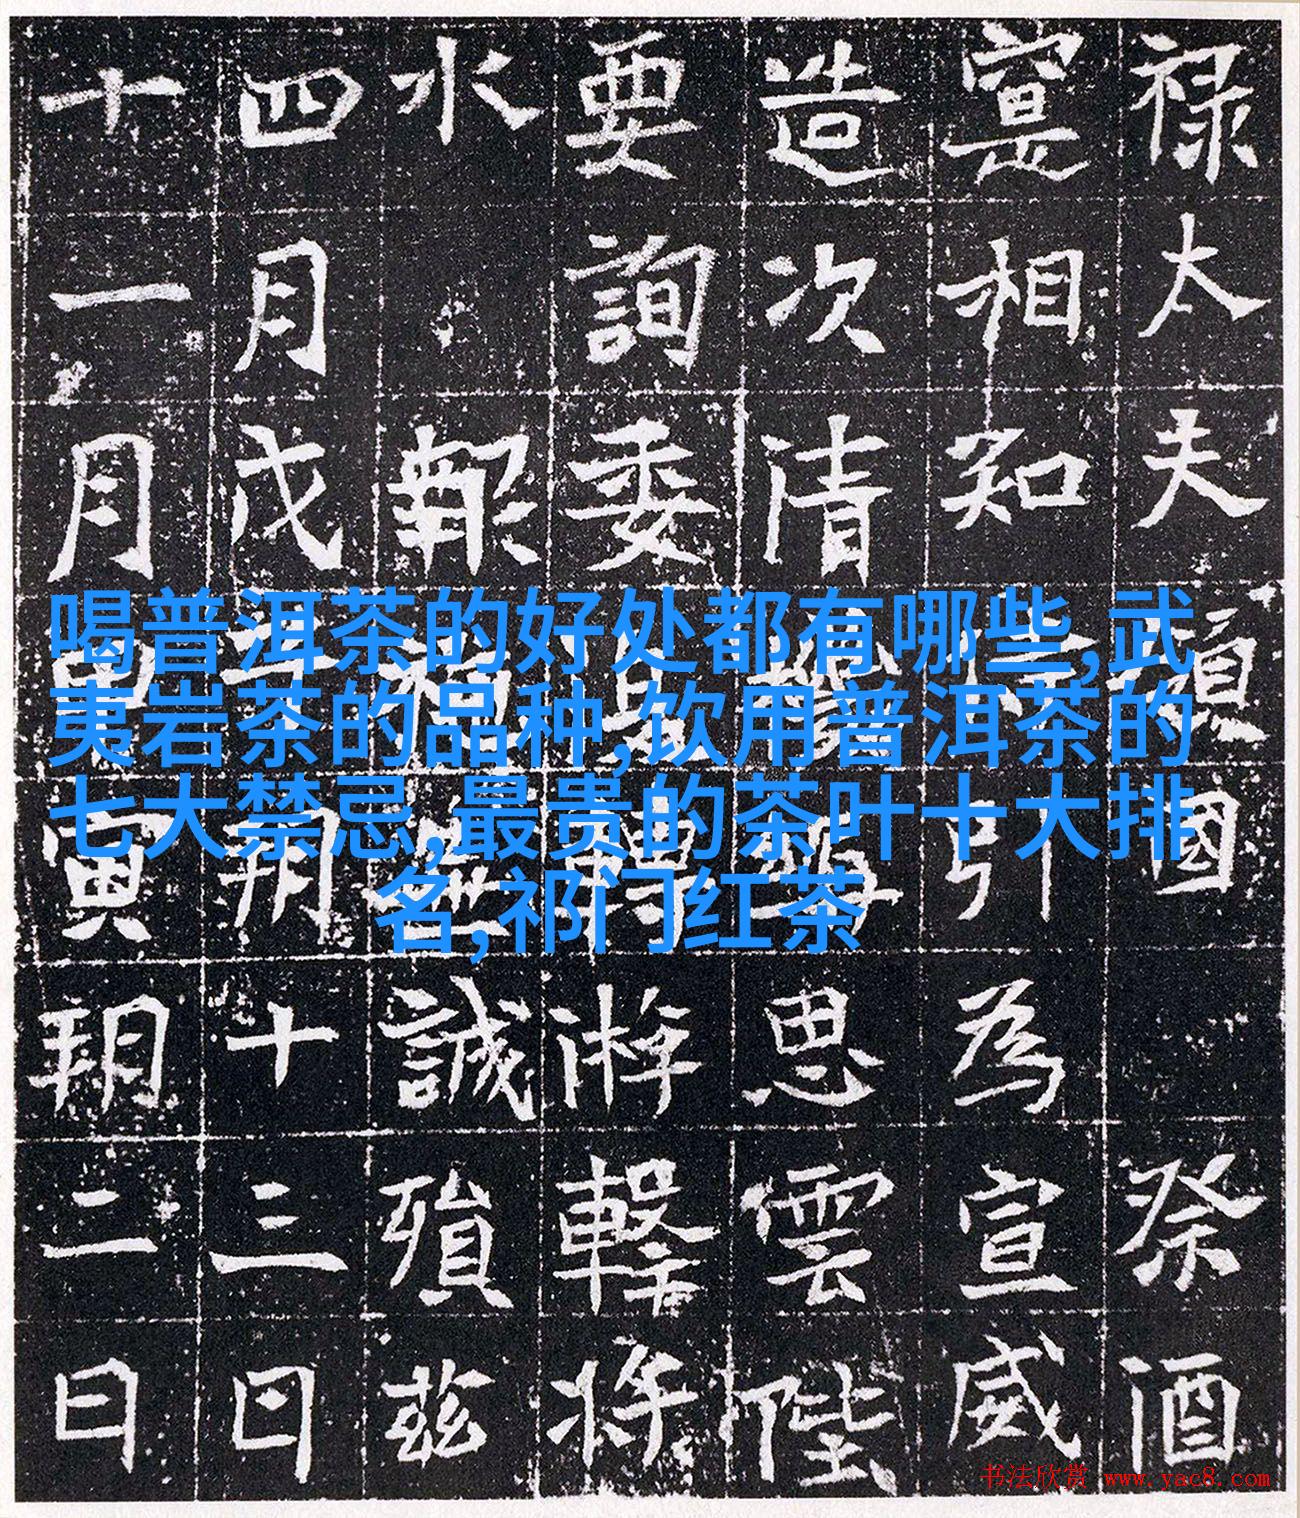 禄太夫國祭酒
寔相知引為宣威
造次清思雲陛
要詢委轉游擊将
水報福無誠殞茲
四月戊子朔十三日
十一月寅朔二日
喝普洱茶的好处都有哪些,武
夷岩茶的品种,饮用普洱茶的
七大禁忌,最贵的茶叶十大排
名,祁门红茶
书法欣赏 www.yac8.com